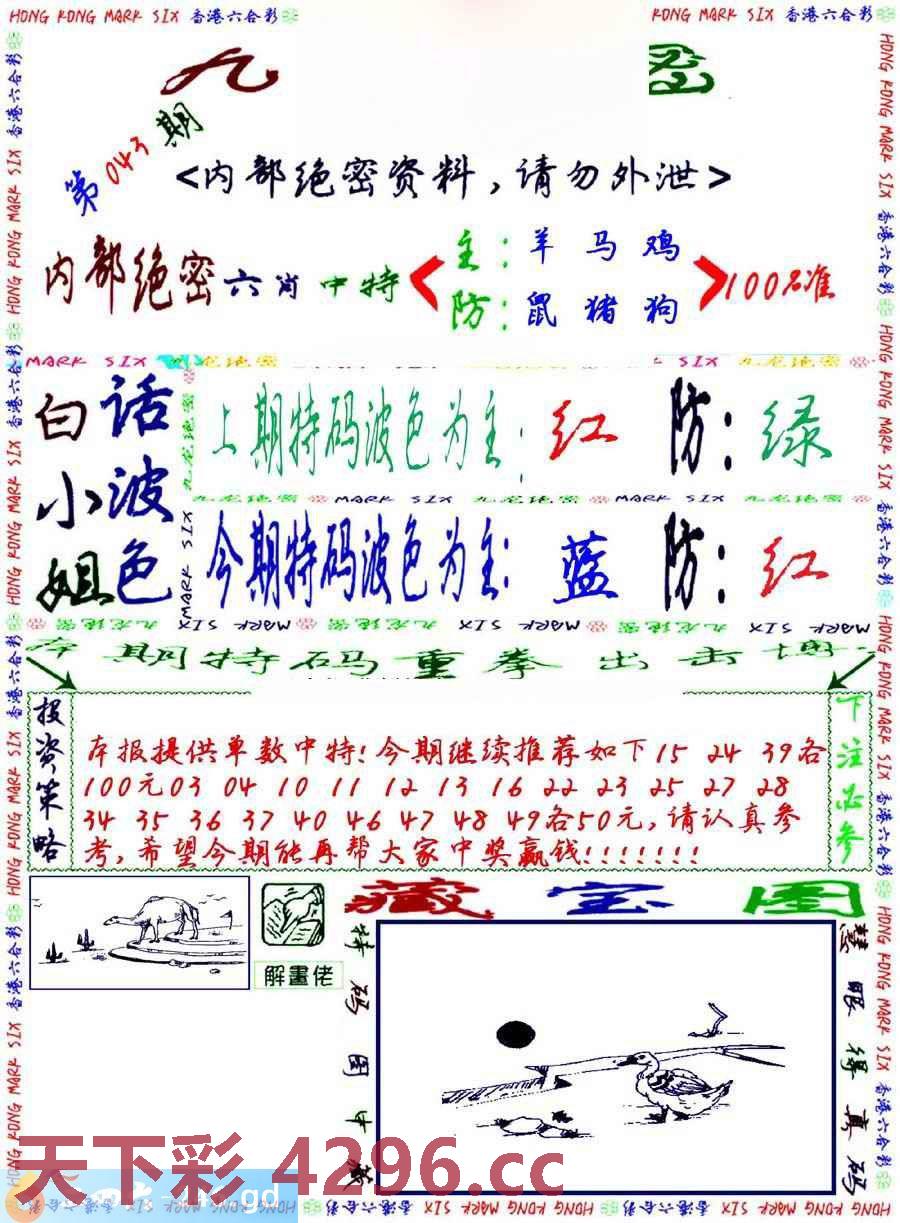 HONG KONG MARK SIX 香港六合彩
KONG MARK SIX 香港六合彩
九
第043期
<内部绝密资料,请勿外泄>
内部绝密六肖中特
主:羊马鸡
防:鼠猪狗
100%准
MARK SIX 九龙绝密
白小姐
话波色
上期特码波色为主:红 防:绿
九龙绝密 MARK SIX 九龙绝密 MARK SIX 九龙绝密
今期特码波色为主:蓝 防:红
本期特码重拳出击
投资策略
本报提供单数中特!今期继续推荐如下15 24 39各
100元03 04 10 11 12 13 16 22 23 25 27 28
34 35 36 37 40 46 47 48 49各50元,请认真参
考,希望今期能再帮大家中奖赢钱!!!!!!!
下注必参
解畫佬
藏宝图
特码图中藏
慧眼得真码
天下彩4296.cc
gd